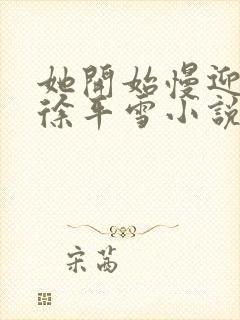 她開始慢迎
徐平雪小說
宋茜